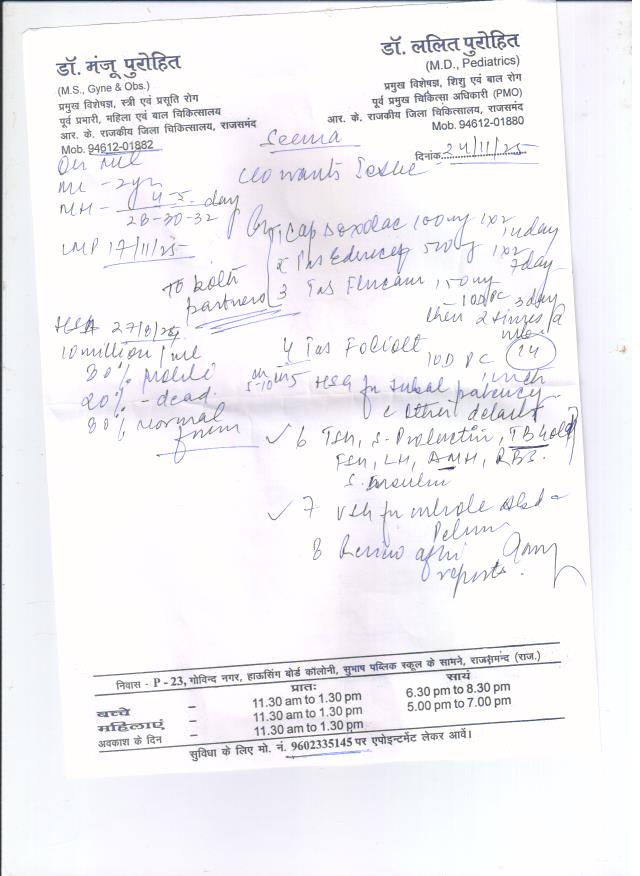 डॉ. मंजू पुरोहित
(M.S., Gyne & Obs.)
प्रमुख विशेषज्ञ, स्त्री एवं प्रसूति रोग
पूर्व प्रभारी, महिला एवं बाल चिकित्सालय
आर. के. राजकीय जिला चिकित्सालय, राजसमंद
Mob. 94612-01882
डॉ. ललित पुरोहित
(M.D., Pediatrics)
प्रमुख विशेषज्ञ, शिशु एवं बाल रोग
पूर्व प्रमुख चिकित्सा अधिकारी (PMO)
आर. के. राजकीय जिला चिकित्सालय, राजसमंद
Mob. 94612-01880
Seema
दिनांक 24/11/25
C/o wants
ML - 2yr
MH - 4-5 day
28-30-32
LMP 17/11/25
To both
partners
1 Cap 100mg 1x2
2 Tas 500mg 1x2
7day
3 Tas 150mg
3day
then 2 times/a
27/8/25
10 million/ml
30% Motile
20% - dead.
80% normal
form
4 Tas
10D PC
14
5 HSG for tubal patency
c other details
6 TSH, S-Prolactin, TB Gold
FSH, LH, AMH, RBS.
S. Insulin
7 USG for whole Abd &
Pelvis
8 Review after
reports.
निवास - P - 23, गोविन्द नगर, हाऊसिंग बोर्ड कॉलोनी, सुभाष पब्लिक स्कूल के सामने, राजसमन्द (राज.)
प्रातः सायं
बच्चे - 11.30 am to 1.30 pm 6.30 pm to 8.30 pm
महिलाएं - 11.30 am to 1.30 pm 5.00 pm to 7.00 pm
अवकाश के दिन - 11.30 am to 1.30 pm
सुविधा के लिए मो. नं. 9602335145 पर एपोइन्टमेंट लेकर आवें।